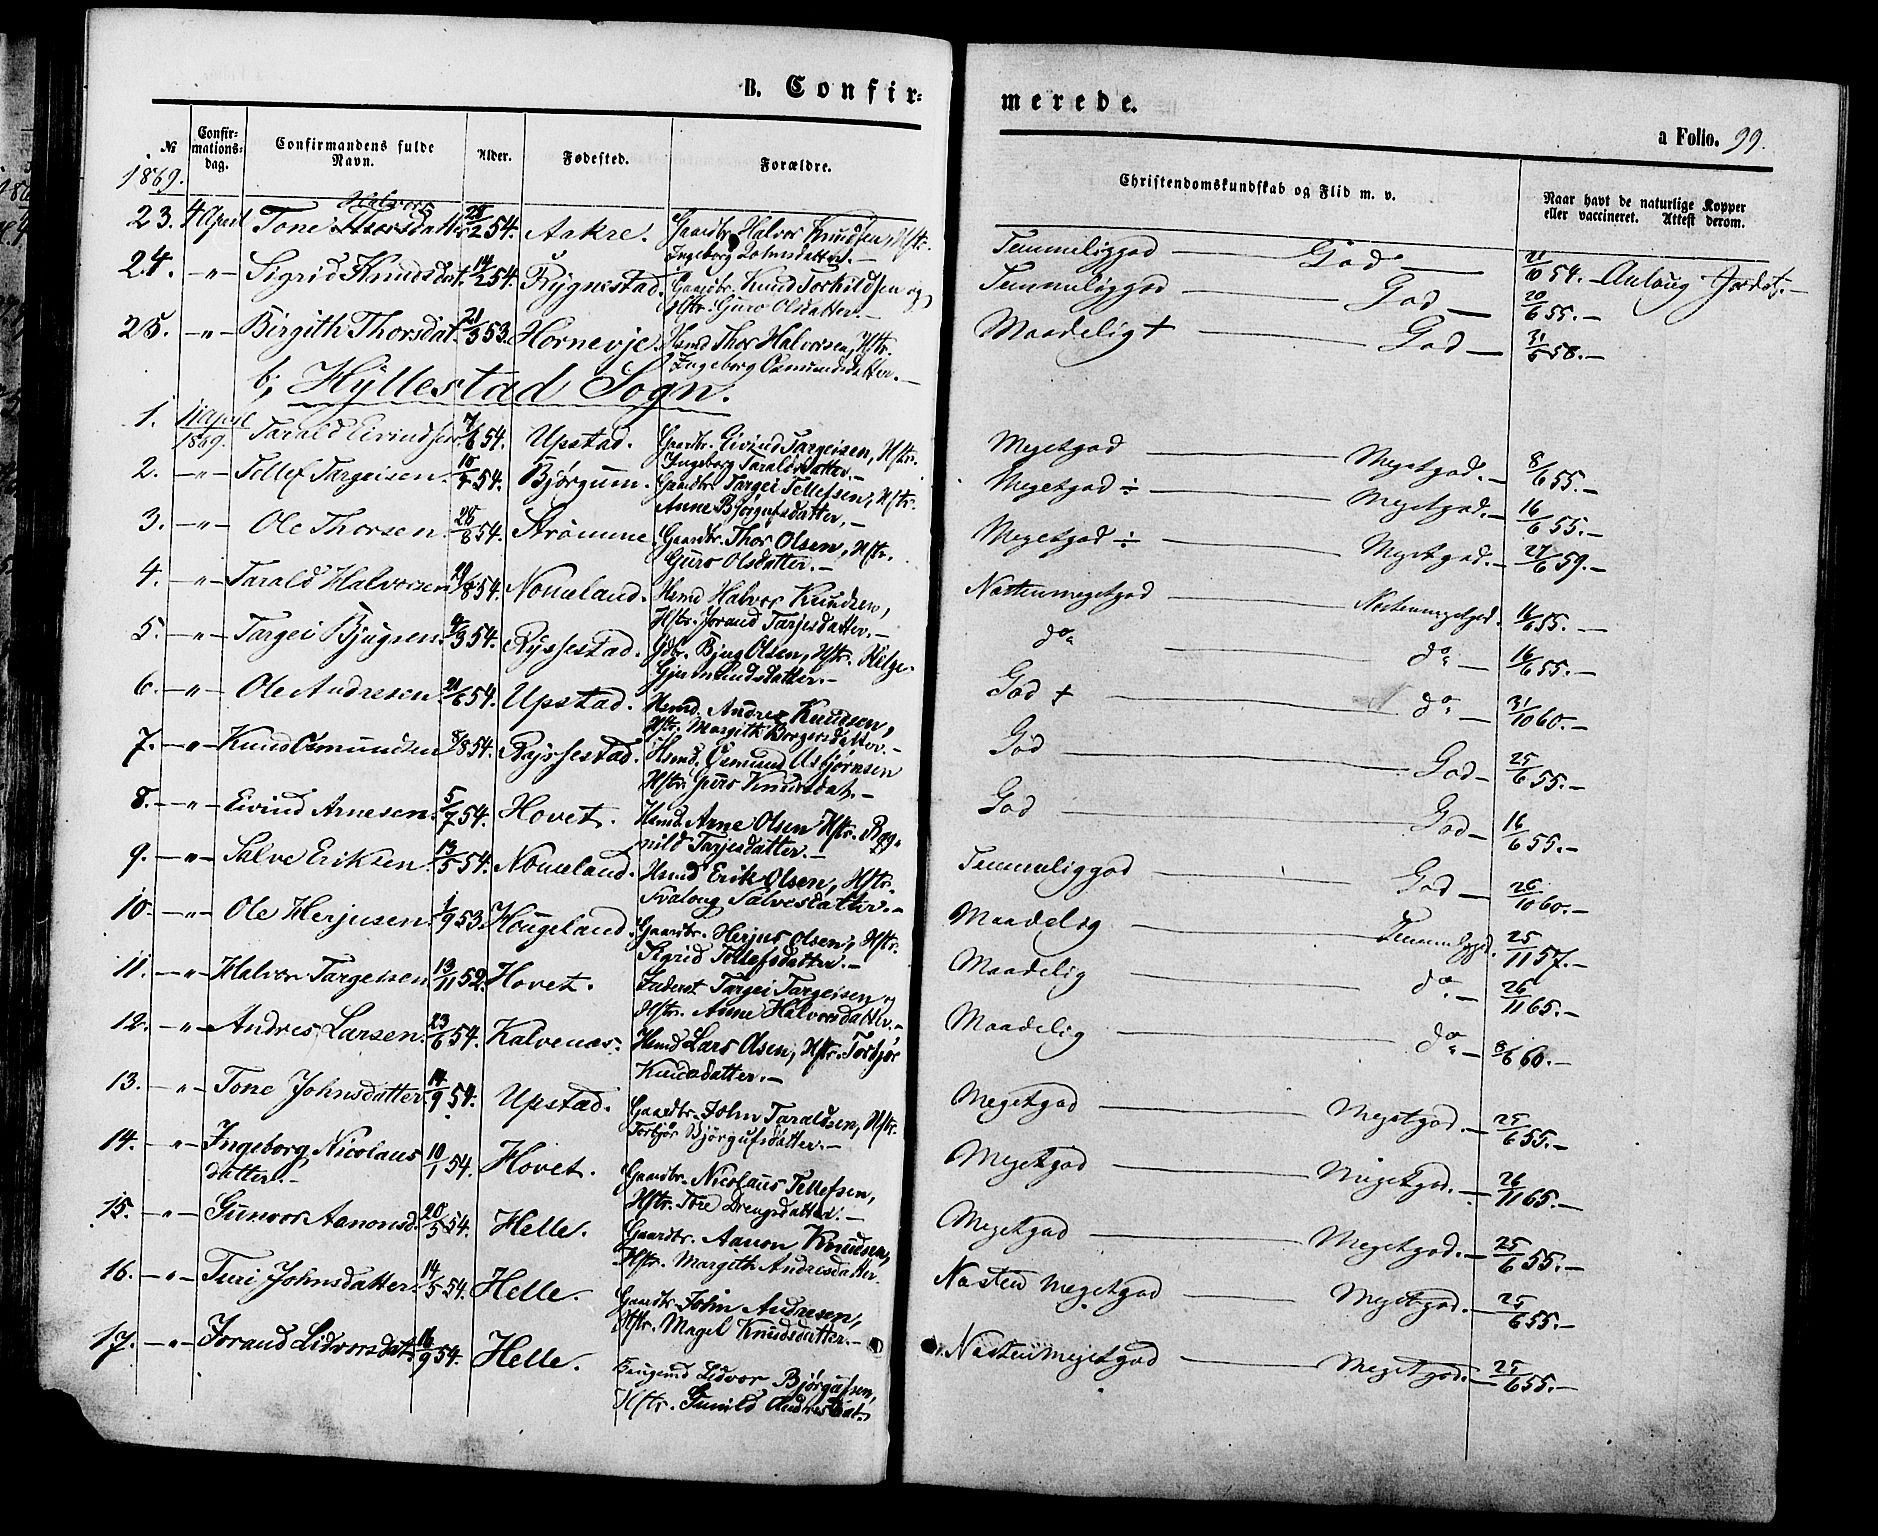 B. Confir=
merede.
a Folio. 99.
№
Confir=
mations=
dag.
Confirmandens fulde
Navn.
Alder.
Fødested.
Forældre.
Christendomskundskab og Flid m. v.
Naar havt de naturlige Kopper
eller vaccineret. Attest derom.
1869.
Halvors
23. 4 April Tone Thorsdatter 28/2 54. Aakre. Gaardbr. Halvor Knudsen, Hstr.
Ingeborg Johnsdatter.— Temmeliggod — God — 21/10 54.—
24. —"— Sigrid Knudsdat. 14/2 54. Rygnestad. Gaardbr. Knud Torkildsen og
Hstr. Guro Olsdatter.— Temmeliggod — God — 20/6 55.—
25. —"— Birgith Thorsdat. 21/3 53. Hornevje. Hsmd Thor Halvorsen, Hstr.
Ingeborg Osmundsdatter.— Maadelig + — God — 31/5 58.—
b, Hyllestad Sogn.
1. 11 April
1869. Tarald Eivindsen. 7/6 54. Upstad. Gaardbr. Eivind Targeisen, Hstr.
Ingeborg Taraldsdatter.— Megetgod — Megetgod.— 8/6 55.—
2. —"— Tellef Targeisen. 10/4 54. Bjørgum. Gaardbr. Targei Tellefsen, Hstr.
Anne Bjørgufsdatter.— Megetgod ÷ — Megetgod.— 16/6 55.—
3. —"— Ole Thorsen. 28/8 54. Strømme. Gaardbr. Thor Olsen, Hstr.
Guro Olsdatter.— Megetgod ÷ — Megetgod.— 27/6 59.—
4. —"— Tarald Halvorsen 29/8 54. Nomeland. Hsmd Halvor Knudsen,
Hstr. Jorand Tarjesdatter.— Næstenmegetgod — Næstenmegetgod. 16/6 55.—
5. —"— Targei Bjugsen. 9/3 54. Ryssestad. Gdbr. Bjug Olsen, Hstr. Helge
Gjermundsdatter.— do — do — 16/6 55.—
6. —"— Ole Andresen 21/6 54. Upstad. Hsmd. Andres Knudsen,
Hstr. Margith Borgersdatter.— God + — do — 31/10 60.—
7. —"— Knud Osmundsen 8/8 54. Ryssestad. Hsmd. Osmund Asbjørnsen
Hstr. Guro Knudsdat.— God — God— 25/6 55.—
8. —"— Eivind Arnesen. 5/7 54. Hovet. Hsmd. Arne Olsen Hstr. Ragn-
nild Tarjesdatter.— God — God— 16/6 55.—
9. —"— Salve Eriksen. 13/5 54. Nomeland. Hsmd Erik Olsen, Hstr.
Svalaug Salvesdatter.— Temmeliggod — God — 26/10 60.—
10. —"— Ole Herjusen. 1/9 53. Hougeland. Gaardbr. Herjus Olsen, Hstr.
Sigrid Tellefsdatter.— Maadelig — Temmeliggod. 25/11 57.—
11. —"— Halvor Targeisen 13/11 52. Hovet. Inderst Targei Targeisen og
Hstr. Anne Halvorsdatter.— Maadelig — do.— 26/11 65.—
12. —"— Andres Larsen. 23/6 54. Kalvenæs. Hsmd Lars Olsen, Hstr. Torbjør
Knudsdatter.— Maadelig — do — 8/6 60.—
13. —"— Tone Johnsdatter. 14/9 54. Upstad. Gaardbr. John Taraldsen, Hstr.
Torbjør Bjørgufsdatter.— Megetgod — Megetgod.— 25/6 55.—
14. —"— Ingeborg Nicolaus
datter.— 10/1 54. Hovet. Gaardbr. Nicolaus Tellefsen,
Hstr. Tore Drengsdatter.— Megetgod — Megetgod.— 26/11 65.—
15. —"— Gunvor Aanonsd. 20/5 54. Helle. Gaardbr. Aanon Knudsen,
Hstr. Margith Andresdatter. Megetgod — Megetgod.— 25/6 55.—
16. —"— Turi Johnsdatter. 14/5 54. Helle. Gaardbr. John Andresen,
Hstr. Magel Knudsdatter.— Næsten Megetgod — Megetgod.— 25/6 55.—
17. —"— Jorand Lidvorsdat. 16/9 54. Helle. Lidvor Bjørgufsen,
Hstr. Gunild Andresdat. Næstenmegetgod — Megetgod.— 25/6 55.—